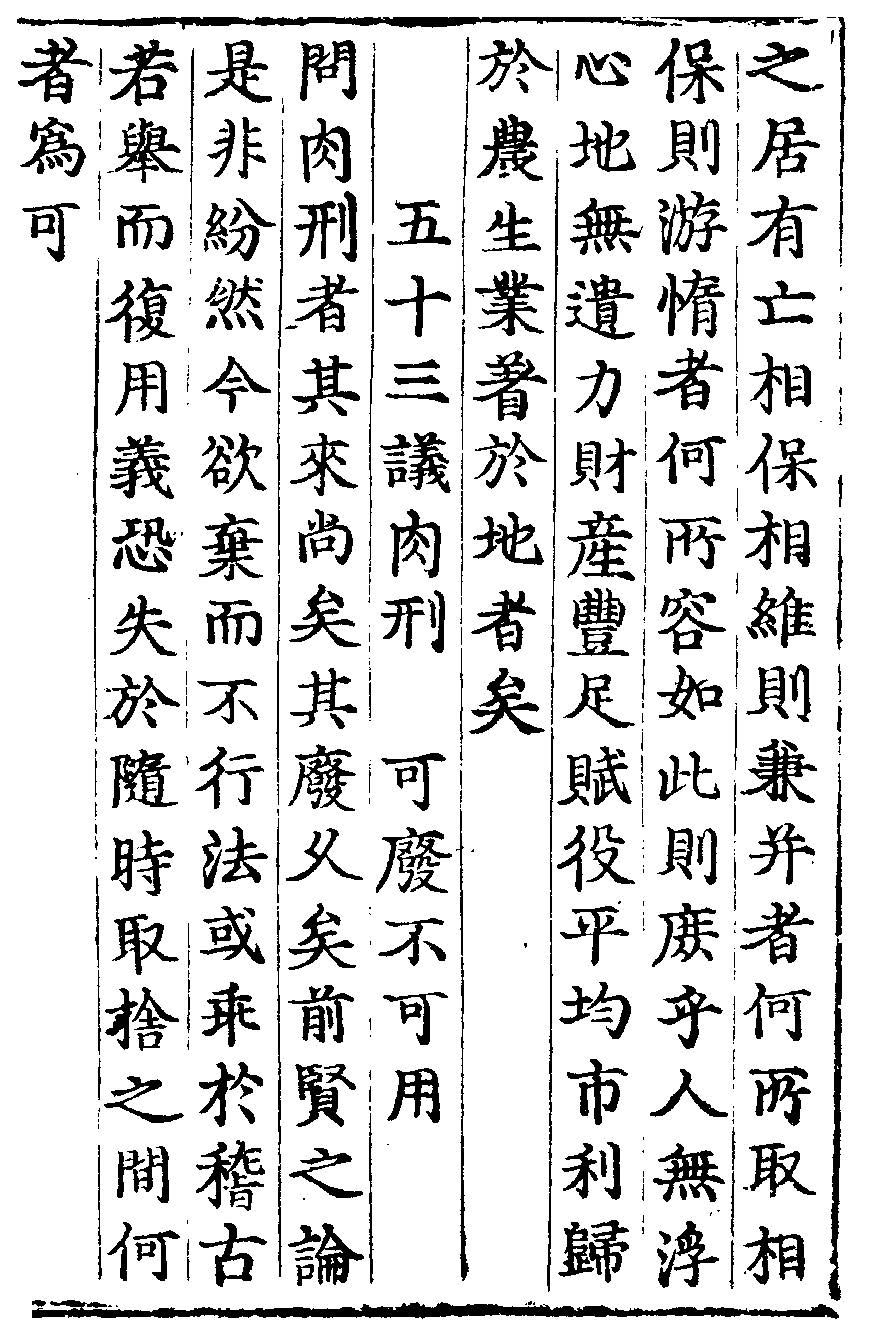 之居有亡相保相維則兼并者何所取相
保則游惰者何所容如此則庻乎人無浮
心地無遺力財産豐足賦役平均市利歸
於農生業著於地者矣
五十三議肉刑　可廢不可用
問肉刑者其來尚矣其廢乆矣前賢之論
是非紛然今欲棄而不行法或乖於稽古
若舉而復用義恐失於隨時取捨之間何
者爲可